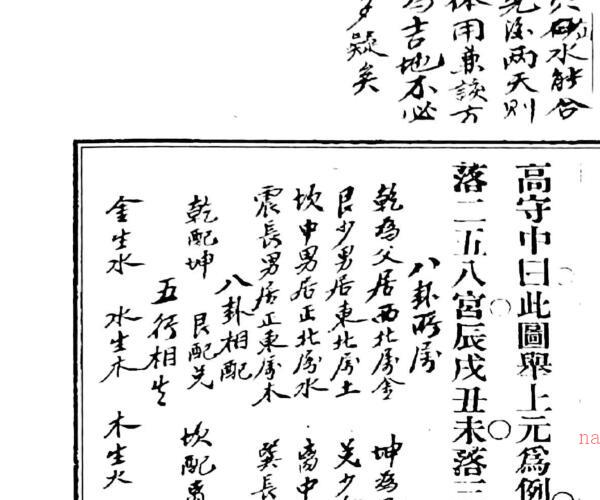 砂水能合
先後兩天則
体用兼談方
為吉地不必
多疑矣
高守中曰此圖舉上元爲例
落二五八宮辰戌丑未落三
八卦所属
乾為父居西北属金 坤為
艮少男居東北属土 兑少
坎中男居正北属水 离中
震長男居正東属木 巽長
八卦相配
乾配坤 艮配兑 坎配离
五行相生
金生水 水生木 木生火
na